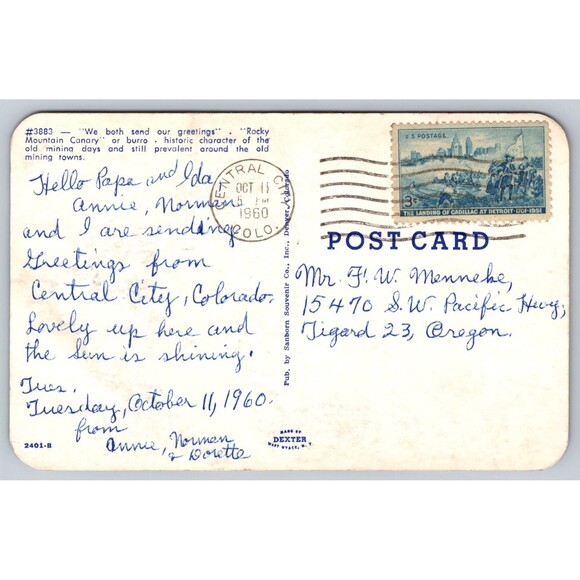 #3883 — "We both send our greetings" . "Rocky
Mountain Canary" or burro - historic character of the
old mining days and still prevalent around the old
mining towns.
Hello Papa and Ida
Annie, Norman
and I are sending
Greetings from
Central City, Colorado.
Lovely up here and
the Sun is shining.
Tues.
Tuesday, October 11, 1960.
from
Annie, Norman
& Dorette
2401-B
Pub. by Sanborn Souvenir Co., Inc., Denver, Colorado
CENTRAL CITY
OCT 11
5 PM
1960
COLO.
U.S. POSTAGE
3¢
THE LANDING OF CADILLAC AT DETROIT·1701-1951
POST CARD
Mr. F. W. Menneke,
15470 S.W. Pacific Hwy,
Tigard 23, Oregon.
MADE BY
DEXTER
WEST NYACK, N. Y.